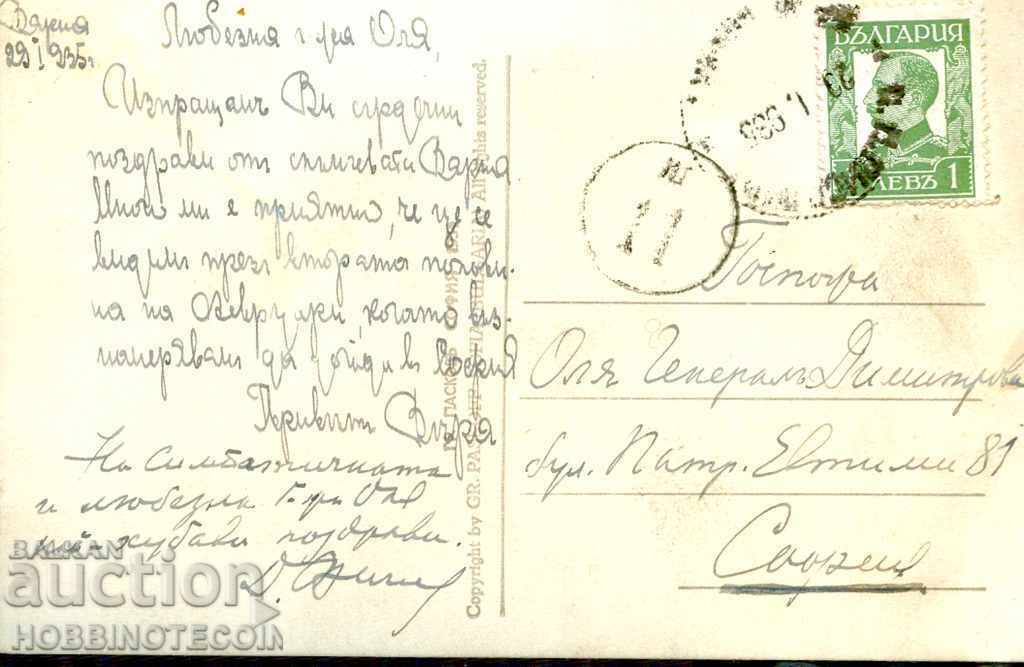 Варна
29 I 935 г
Любезна г-жа Оля,
Изпращамъ Ви сърдечни
поздрави отъ слънчевата Варна
Много ми е приятно, че ще се
видимъ презъ втората полови-
на на Февруари, когато
намерявамъ да дойда въ София
Приветъ Вѣра
На симпатичната
и любезна Г-жа Оля
най-хубави поздрави.
Госпожа
Оля Генералъ Димитрова
бул. Патр. Евтимий 81
София
БЪЛГАРИЯ
1 ЛЕВЪ 1
ГР. ПАСКОВЪ СОФИЯ
Copyright by GR. PASKOFF SOFIA BULGARIA All rights reserved.
BALKAN
auction
HOBBINOTECOIN